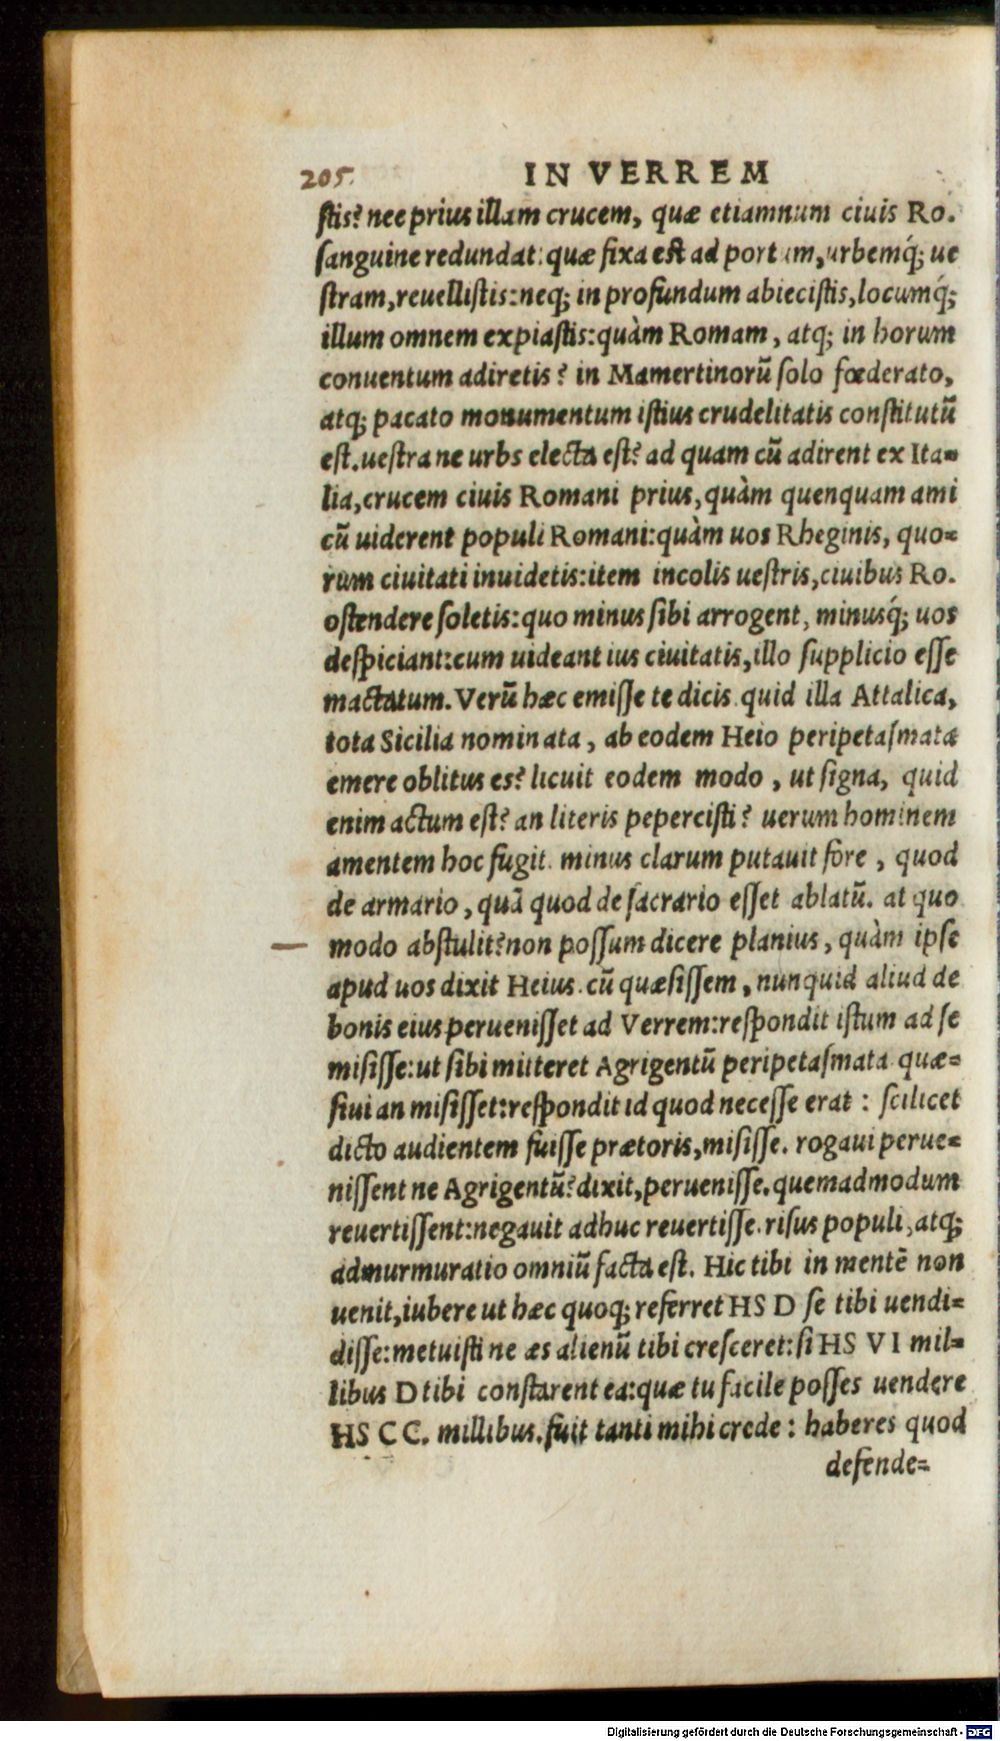 205.
IN VERREM
stis? nec prius illam crucem, quæ etiamnum ciuis Ro.
sanguine redundat: quæ fixa est ad portum, urbemq́; ue
stram, reuellistis: neq; in profundum abiecistis, locumq́;
illum omnem expiastis: quàm Romam, atq; in horum
conuentum adiretis? in Mamertinorũ solo fœderato,
atq; pacato monumentum istius crudelitatis constitutũ
est. uestra ne urbs electa est? ad quam cũ adirent ex Ita=
lia, crucem ciuis Romani prius, quàm quenquam ami
cũ uiderent populi Romani: quàm uos Rheginis, quo=
rum ciuitati inuidetis: item incolis uestris, ciuibus Ro.
ostendere soletis: quo minus sibi arrogent, minusq́; uos
despiciant: cum uideant ius ciuitatis, illo supplicio esse
mactatum. Verũ hæc emisse te dicis. quid illa Attalica,
tota Sicilia nominata, ab eodem Heio peripetasmata
emere oblitus es? licuit eodem modo, ut signa, quid
enim actum est? an literis pepercisti? uerum hominem
amentem hoc fugit. minus clarum putauit fore, quod
de armario, quã quod de sacrario esset ablatũ. at quo
modo abstulit? non possum dicere planius, quàm ipse
apud uos dixit Heius. cũ quæsissem, nunquid aliud de
bonis eius peruenisset ad Verrem: respondit istum ad se
misisse: ut sibi mitteret Agrigentũ peripetasmata. quæ=
siui an misisset: respondit id quod necesse erat: scilicet
dicto audientem fuisse prætoris, misisse. rogaui perue=
nissent ne Agrigentũ? dixit, peruenisse. quemadmodum
reuertissent: negauit adhuc reuertisse. risus populi, atq;
admurmuratio omniũ facta est. Hic tibi in mentẽ non
uenit, iubere ut hæc quoq; referret HS D se tibi uendi=
disse: metuisti ne æs alienũ tibi cresceret: si HS VI mil=
libus D tibi constarent ea: quæ tu facile posses uendere
HS C C. millibus. fuit tanti mihi crede: haberes quod
defende=
Digitalisierung gefördert durch die Deutsche Forschungsgemeinschaft - DFG